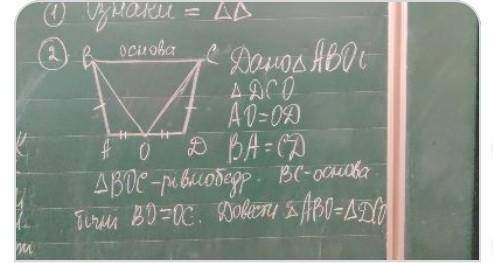 ① Ознаки = ΔΔ
② B основа C
A O D
Дано Δ ABO і
Δ DCO
AO=OD
BA=CD
ΔBOC-рівнобедр. BC-основа.
бічні BO=OC. Довести ΔABO=ΔDCO